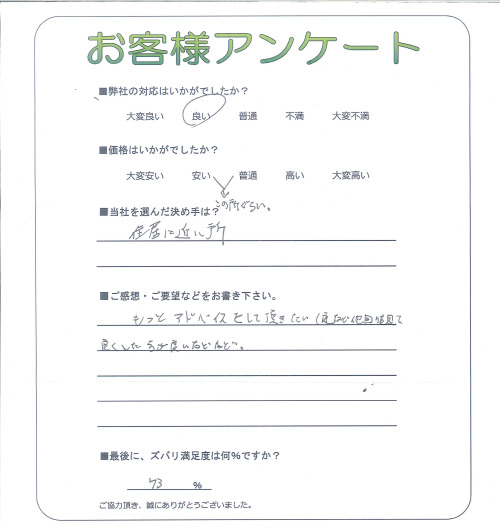 お客様アンケート
■弊社の対応はいかがでしたか？
大変良い 良い 普通 不満 大変不満
■価格はいかがでしたか？
大変安い 安い 普通 高い 大変高い
この所ぐらい。
■当社を選んだ決め手は？
住居に近い所
■ご感想・ご要望などをお書き下さい。
もっとアドバイスをして頂きたい(
良くした方が良いなどなど。
■最後に、ズバリ満足度は何％ですか？
93 ％
ご協力頂き、誠にありがとうございました。